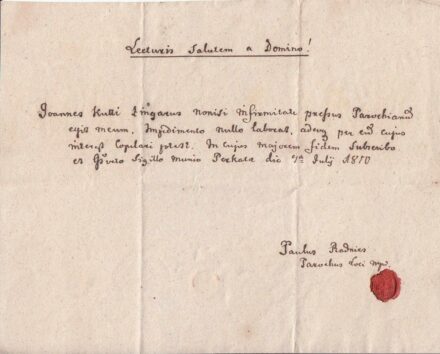 Lecturis Salutem a Domino!
Joannes Kutti Zingarus nonisi infirmitate pressus Parochianus
est meus. Impedimento nullo laborat, adeoq per eum cujus
interest Copulari potest. In cujus majorem fidem Subscribo
et Sigillo munio Perkata die 7a Julij 1810
Paulus
Parochus Loci mpr.